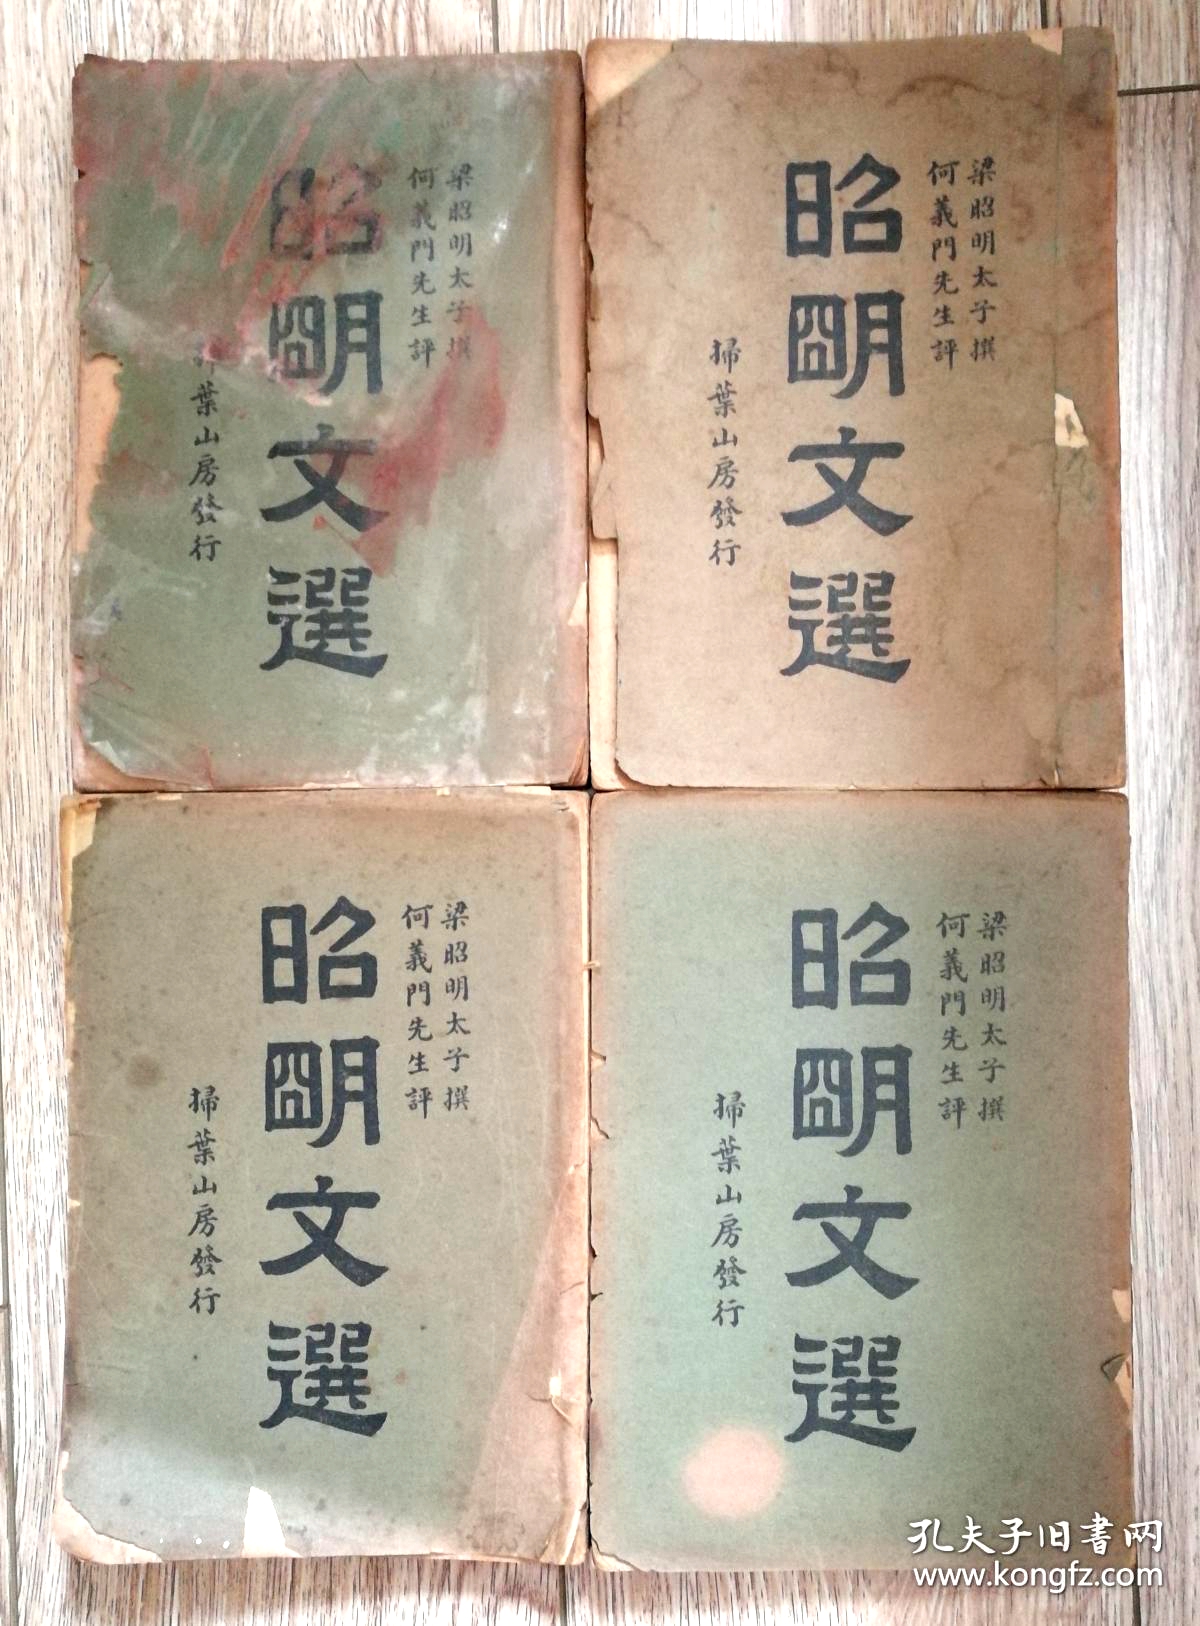 梁昭明太子撰
何義門先生評
昭明文選
掃葉山房發行
梁昭明太子撰
何義門先生評
昭明文選
掃葉山房發行
梁昭明太子撰
何義門先生評
昭明文選
掃葉山房發行
梁昭明太子撰
何義門先生評
昭明文選
掃葉山房發行
孔夫子旧書网
www.kongfz.com